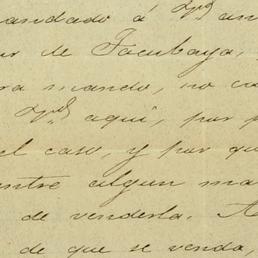 andado á Vd. an
ur de Tacubaya,
ra mando, no co
Vd. aquí, por p
el caso, y por qu
entre algun ma
de venderla. A
de que se venda,